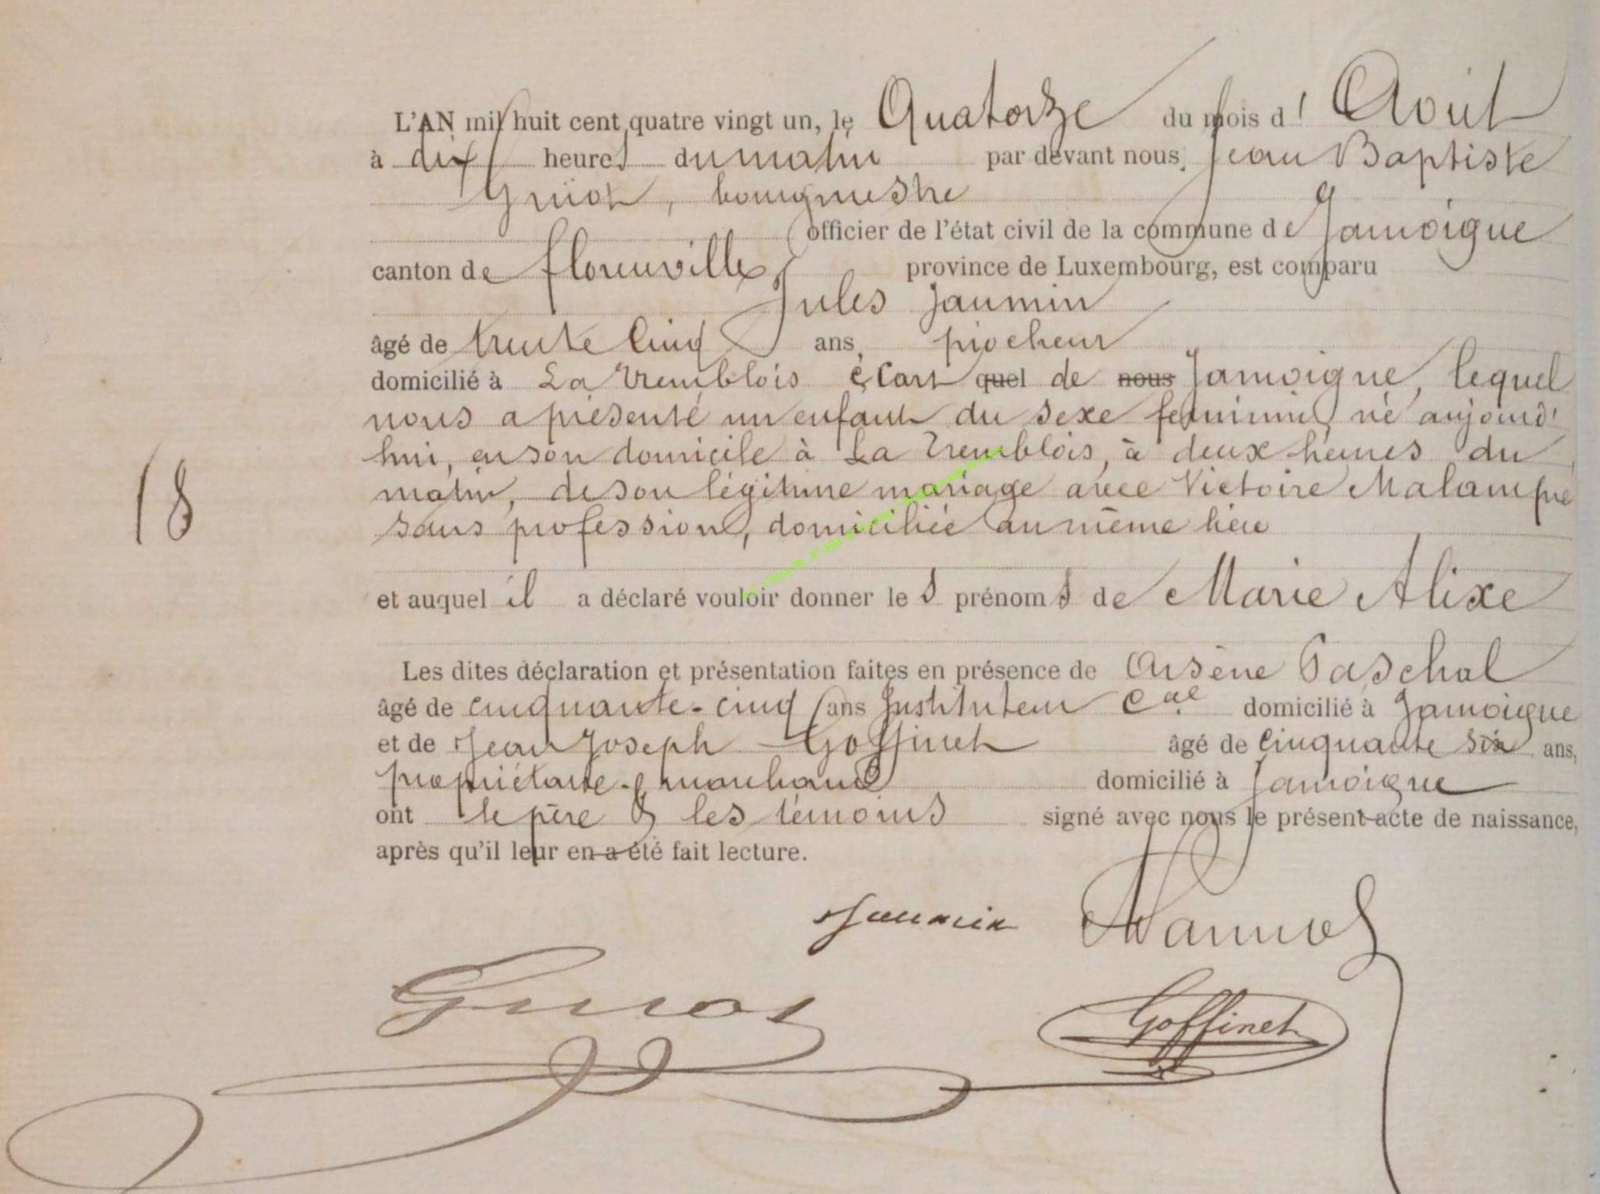 L'AN mil huit cent quatre vingt un, le Quatorze du mois d' Août
à dix heures du matin par devant nous, Jean Baptiste
Guiot, bourgmestre
officier de l'état civil de la commune de Jamoigne
canton de florenville, province de Luxembourg, est comparu
Jules Jaumin
âgé de trente Cinq ans, piocheur
domicilié à La Tremblois écart quel de nous Jamoigne, lequel
nous a présenté un enfant du sexe feminin, né aujourd'
hui, en son domicile à La Tremblois, à deux heures du
matin, de son légitime mariage avec Victoire Malampré
sans profession, domiciliée au même lieu
18
et auquel il a déclaré vouloir donner les prénoms de Marie Alixe
Les dites déclaration et présentation faites en présence de Arsène Paschal
âgé de cinquante-cinq ans Instituteur Cal domicilié à Jamoigne
et de Jean Joseph Goffinet âgé de cinquante six ans,
propriétaire & marchand domicilié à Jamoigne
ont le père & les témoins signé avec nous le présent acte de naissance,
après qu'il leur en a été fait lecture.
Jaumin
Guiot Goffinet